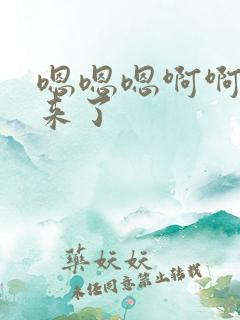 嗯嗯嗯啊啊
来了
药妖妖
未经同意禁止转载